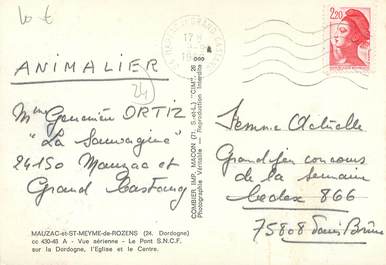 10 €
ANIMALIER
24
Mme Geneviève ORTIZ
"La Sauvagine"
24150 Mauzac et
Grand Castang
MAUZAC-et-ST-MEYME-de-ROZENS (24. Dordogne)
cc 430-43 A - Vue aérienne - Le Pont S.N.C.F.
sur la Dordogne, l'Eglise et le Centre.
COMBIER IMP. MACON (71. S.-et-L.) "CIM"
Photographie Véritable - Reproduction Interdite
2,20
Femme Actuelle
Grand jeu concours
de la semaine
Cedex 866
75808 Paris Brune